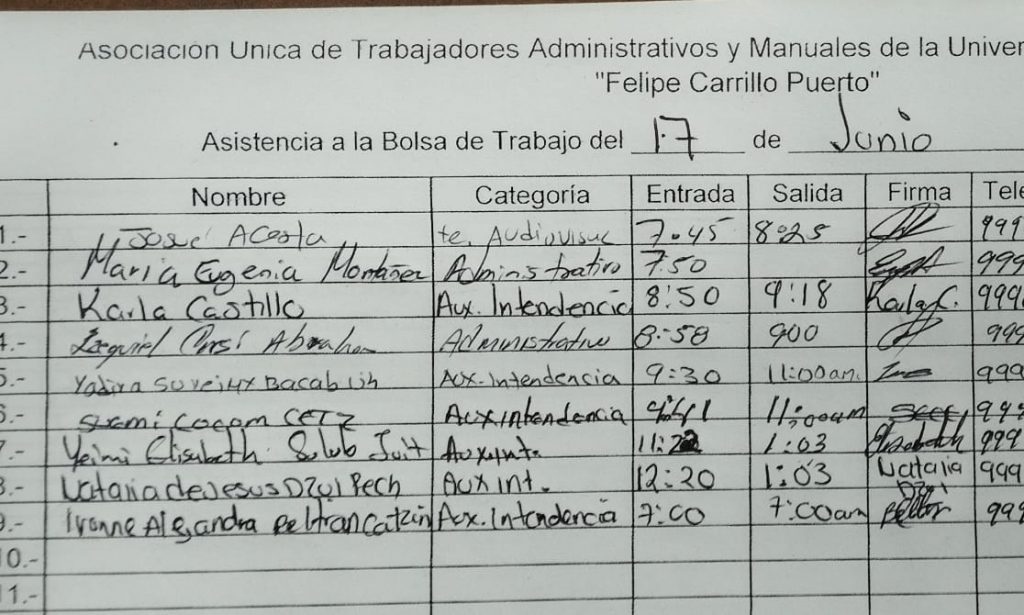 Asociación Unica de Trabajadores Administrativos y Manuales de la Univer
"Felipe Carrillo Puerto"
Asistencia a la Bolsa de Trabajo del 17 de Junio
Nombre Categoría Entrada Salida Firma Tele
1.- José Acosta te. Audiovisual 7.45 8:25 999
2.- Maria Eugenia Montañez Administrativo 7:50 999
3.- Karla Castillo Aux. Intendencia 8:50 9:18 Karla C. 999
4.- Ezequiel Abraham Administrativo 8:58 900 999
5.- Bacab Uh Aux. Intendencia 9:30 11:00am. 999
6.- Cocom Aux intendencia 11:00am 999
7.- Yeimi Elisabeth Aux.int. 1:03 Elisabeth 999
8.- Natalia de Jesus Dzul Pech Aux int. 12:20 1:03 Natalia Dzul 999
9.- Ivonne Alejandra Beltran Catzin Aux. Intendencia 7:00 7:00am 999
10.-
11.-